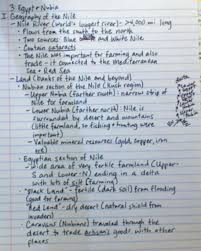 3 Egypt + Nubia
I Geography of the Nile
- Nile River (World's longest river) - >4,000 mi long
- Flows from the south to the north
- Two sources: Blue and White Nile
- Contain cataracts
- The Nile was important for farming and also
trade - it connected to the Mediterranean
Sea + Red Sea
- Land (Banks of the Nile and beyond)
- Nubian section of the Nile (Kush region)
- Upper Nubia (farther south): narrow strip of
Nile for farmland
- Lower Nubia (farther north): Nile is
surrounded by desert and mountains
(little farmland, so fishing + hunting were
important)
- Valuable mineral resources (gold, copper, iron
ore)
- Egyptian section of Nile
- Wide area of very fertile farmland (Upper-
S and Lower-N) ending in a delta
with lots of silt (farming)
- "Black Land" - fertile (dark soil) from flooding
(good for farming)
- "Red Land" - dry desert (natural shield from
invaders)
- Caravans (Nubians) traveled through the
desert to trade artisans goods with other
places